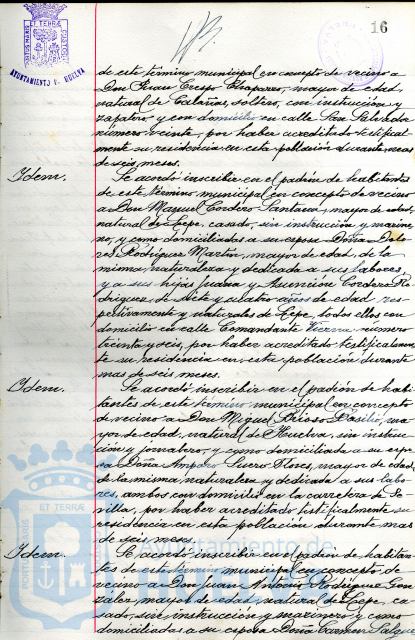 16
AYUNTAMIENTO DE HUELVA
de este término municipal en concepto de vecino a
Don Juan Crespo Chaparro, mayor de edad,
natural de Calañas, soltero, con instrucción y
zapatero y con domicilio en calle San Salvador
número veinte, por haber acreditado testifical-
mente su residencia en esta población durante mas
de seis meses.
Idem. Se acordó inscribir en el padrón de habitantes
de este término municipal en concepto de vecino
a Don Manuel Cordero Santana, mayor de edad,
natural de Lepe, casado, sin instrucción y marine-
ro, y como domiciliadas a su esposa Doña Dolo-
res Rodríguez Martín, mayor de edad, de la
misma naturaleza y dedicada a sus labores,
y a sus hijas Juana y Asunción Cordero Ro-
dríguez, de siete y cuatro años de edad res-
pectivamente y naturales de Lepe, todos ellos con
domicilio en calle Comandante Vierna número
veinte y seis, por haber acreditado testificalmen-
te su residencia en esta población durante
mas de seis meses.
Idem. Se acordó inscribir en el padrón de habi-
tantes de este término municipal en concepto
de vecino a Don Miguel Brioso Basilio, ma-
yor de edad, natural de Huelva, sin instruc-
ción y jornalero, y como domiciliada a su espo-
sa Doña Amparo Suero Flores, mayor de edad,
de la misma naturaleza y dedicada a sus labo-
res, ambos con domicilio en la carretera de Se-
villa, por haber acreditado testificalmente su
residencia en esta población durante mas
de seis meses.
Idem. Se acordó inscribir en el padrón de habitan-
tes de este término municipal en concepto de
vecino a Don Juan Antonio Rodríguez Gon-
zález, mayor de edad, natural de Lepe, ca-
sado, sin instrucción y marinero y como
domiciliadas a su esposa Doña Carmen
Ayuntamiento de
HUELVA